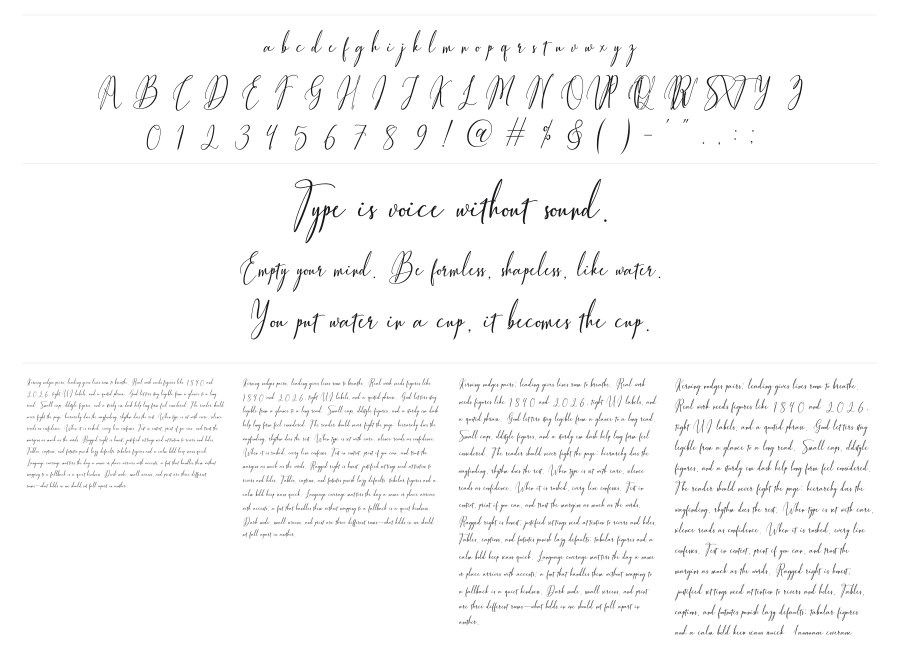 a b c d e f g h i j k l m n o p q r s t u v w x y z
A B C D E F G H I J K L M N O U P Q R W S T Y Z
0 1 2 3 4 5 6 7 8 9 ! @ # % & ( ) - ' " . , : ;
Type is voice without sound.
Empty your mind. Be formless, shapeless, like water.
You put water in a cup, it becomes the cup.
Kerning nudges pairs; leading gives lines room to breathe. Real work needs figures like 1890 and
2026, tight UI labels, and a quoted phrase. Good letters stay legible from a glance to a long
read. Small caps, oldstyle figures, and a sturdy em dash help long form feel considered. The reader should
never fight the page: hierarchy does the wayfinding, rhythm does the rest. When type is set with care, silence
reads as confidence. When it is rushed, every line confesses. Test in context, print if you can, and trust the
margins as much as the words. Ragged right is honest; justified settings need attention to rivers and holes.
Tables, captions, and footnotes punish lazy defaults: tabular figures and a calm bold keep scans quick.
Language coverage matters the day a name or place arrives with accents; a font that handles them without
mapping to a fallback is a quiet kindness. Dark mode, small screens, and print are three different
rooms—what holds in one should not fall apart in another.
Kerning nudges pairs; leading gives lines room to breathe. Real work needs figures like
1890 and 2026, tight UI labels, and a quoted phrase. Good letters stay
legible from a glance to a long read. Small caps, oldstyle figures, and a sturdy em dash
help long form feel considered. The reader should never fight the page: hierarchy does the
wayfinding, rhythm does the rest. When type is set with care, silence reads as confidence.
When it is rushed, every line confesses. Test in context, print if you can, and trust the
margins as much as the words. Ragged right is honest; justified settings need attention to
rivers and holes. Tables, captions, and footnotes punish lazy defaults: tabular figures and a
calm bold keep scans quick. Language coverage matters the day a name or place arrives
with accents; a font that handles them without mapping to a fallback is a quiet kindness.
Dark mode, small screens, and print are three different rooms—what holds in one should
not fall apart in another.
Kerning nudges pairs; leading gives lines room to breathe. Real work
needs figures like 1890 and 2026, tight UI labels, and
a quoted phrase. Good letters stay legible from a glance to a long read.
Small caps, oldstyle figures, and a sturdy em dash help long form feel
considered. The reader should never fight the page: hierarchy does the
wayfinding, rhythm does the rest. When type is set with care, silence
reads as confidence. When it is rushed, every line confesses. Test in
context, print if you can, and trust the margins as much as the words.
Ragged right is honest; justified settings need attention to rivers and holes.
Tables, captions, and footnotes punish lazy defaults: tabular figures and a
calm bold keep scans quick. Language coverage matters the day a name
or place arrives with accents; a font that handles them without mapping to
a fallback is a quiet kindness. Dark mode, small screens, and print
are three different rooms—what holds in one should not fall apart in
another.
Kerning nudges pairs; leading gives lines room to breathe.
Real work needs figures like 1890 and 2026,
tight UI labels, and a quoted phrase. Good letters stay
legible from a glance to a long read. Small caps, oldstyle
figures, and a sturdy em dash help long form feel considered.
The reader should never fight the page: hierarchy does the
wayfinding, rhythm does the rest. When type is set with care,
silence reads as confidence. When it is rushed, every line
confesses. Test in context, print if you can, and trust the
margins as much as the words. Ragged right is honest;
justified settings need attention to rivers and holes. Tables,
captions, and footnotes punish lazy defaults: tabular figures
and a calm bold keep scans quick. Language coverage